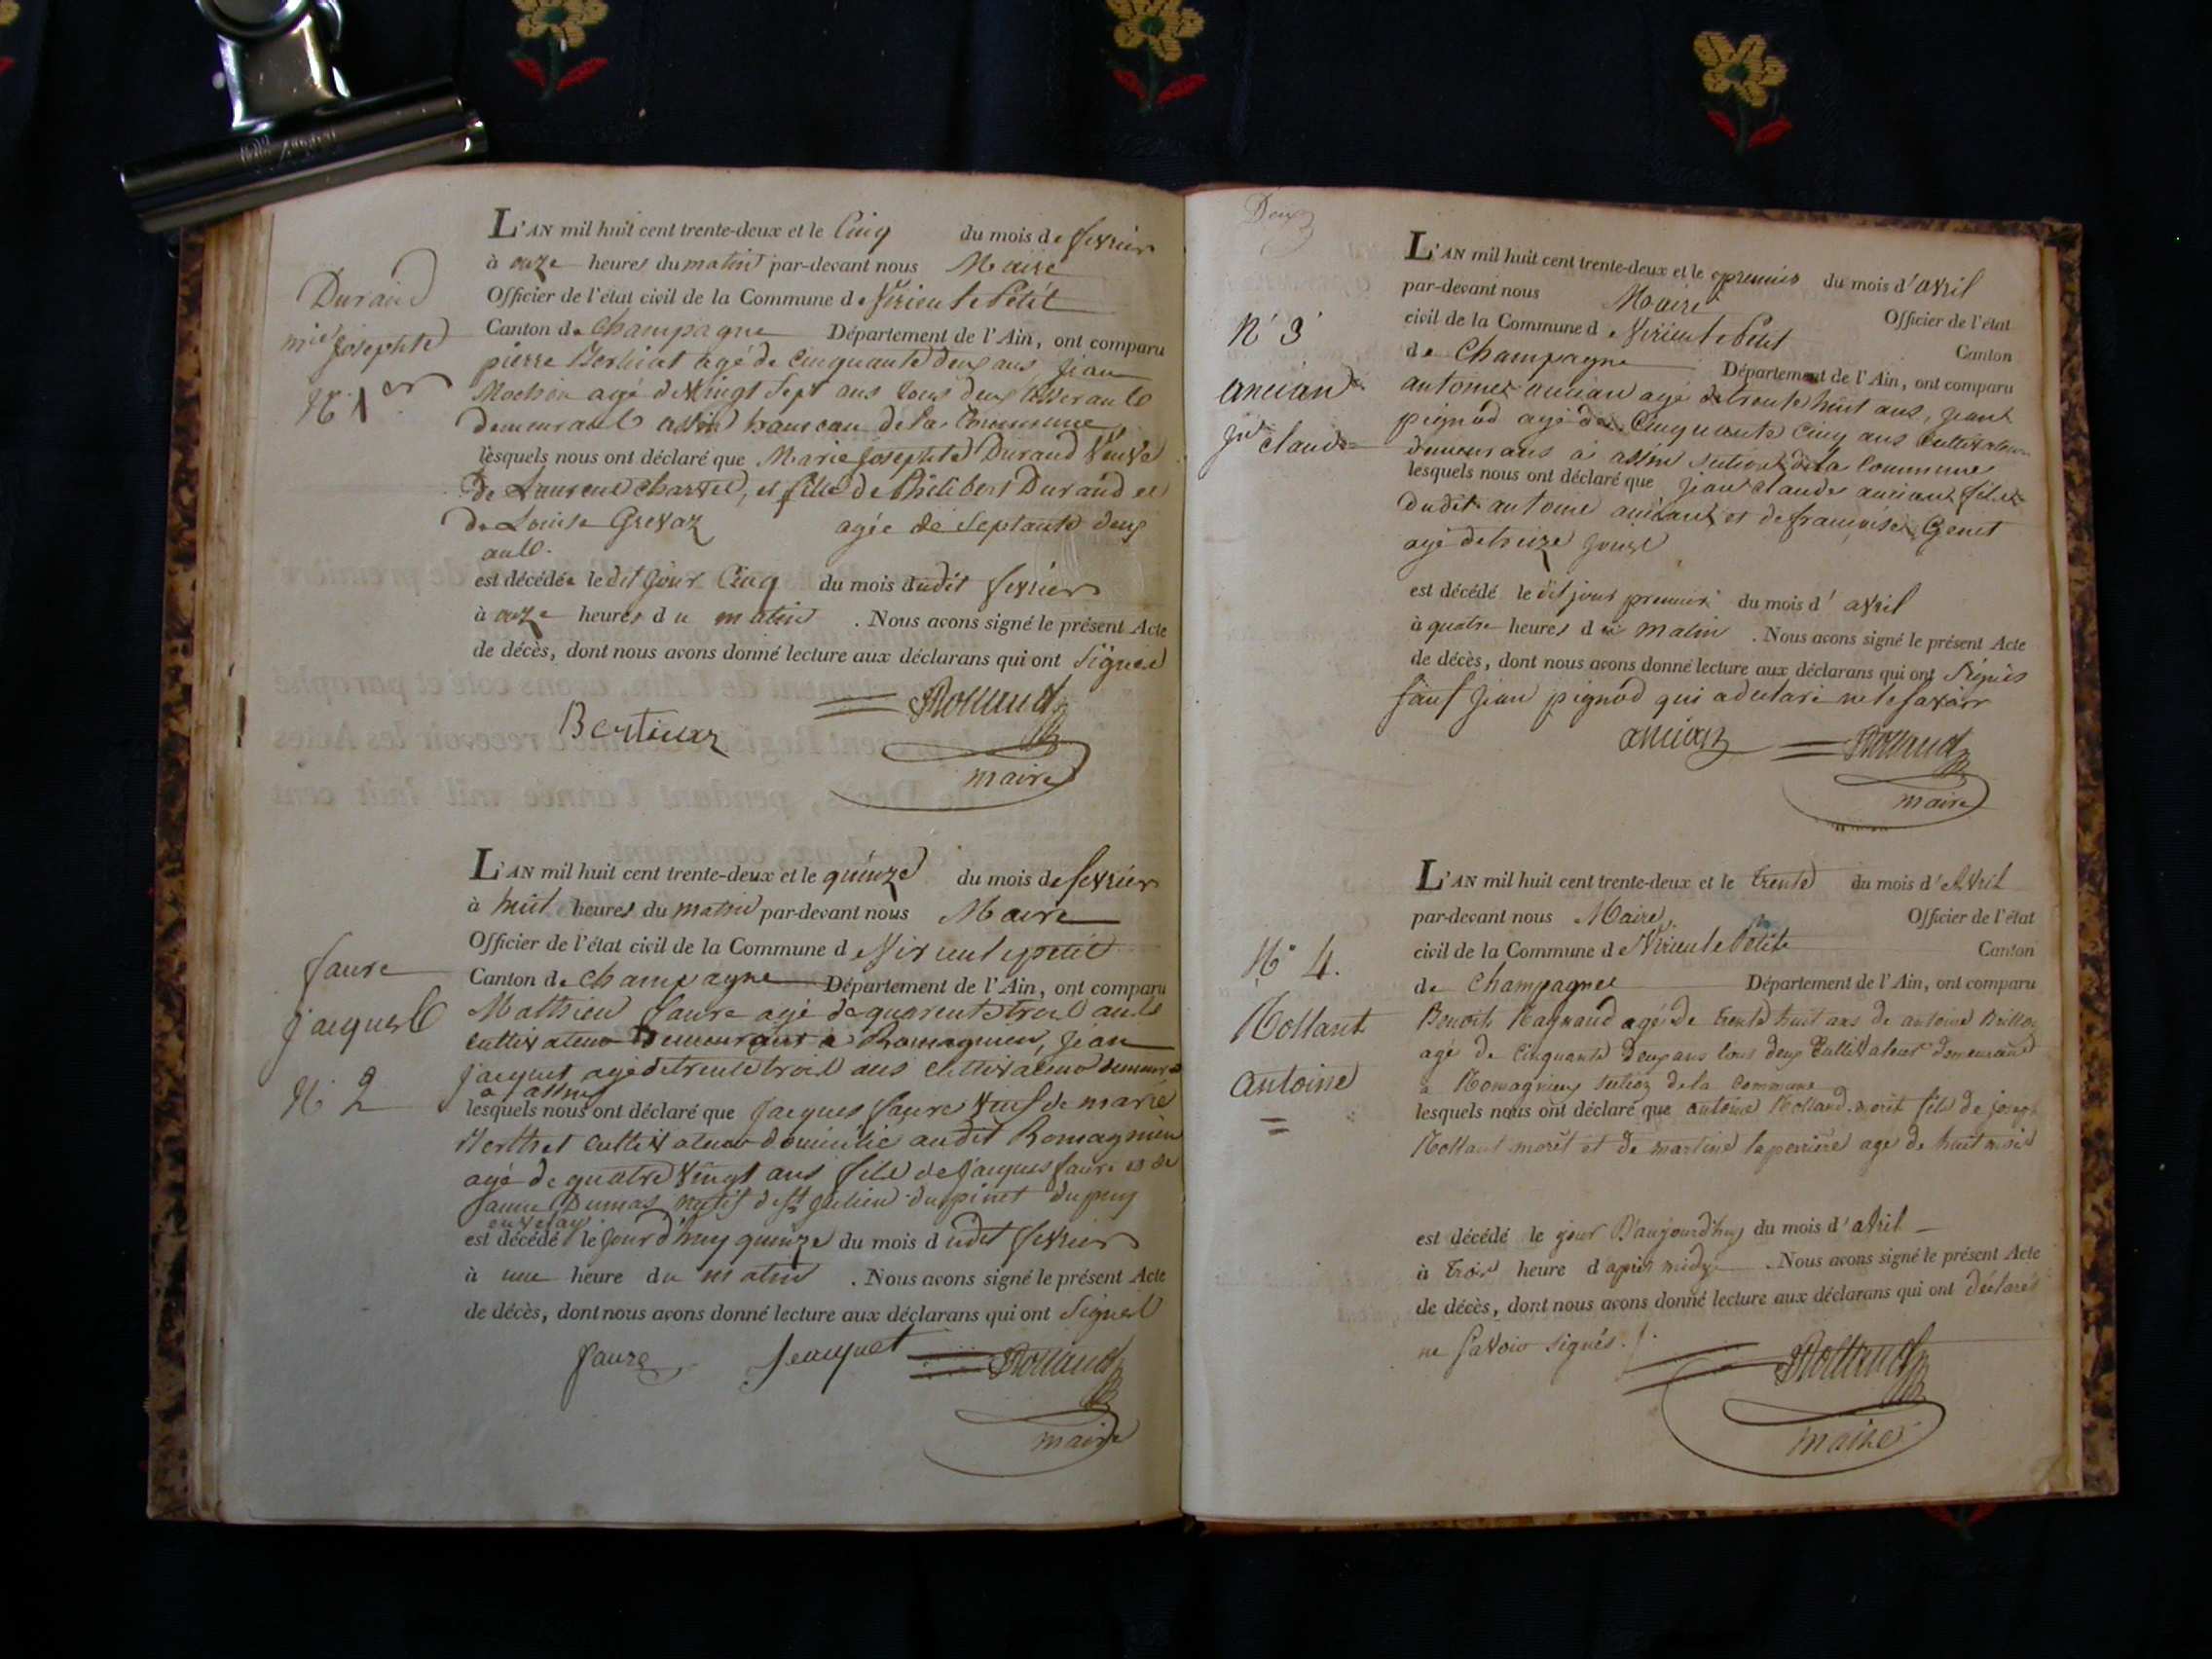 Durand
mie Josephte
N° 1er
L'AN mil huit cent trente-deux et le Cinq du mois de fevrier
à onze heures du matin par-devant nous Maire
Officier de l'état civil de la Commune de Virieu le Petit
Canton de Champagne Département de l'Ain, ont comparu
pierre Berthet agé de cinquante deux ans, Jean
Mochon agé de vingt sept ans tous deux
demeurant assin hameau de la Commune,
lesquels nous ont déclaré que Marie Josephte Durand Veuve
de Laurent charvet, et fille de Philibert Durand et
de Louise Grevaz agée de Septante deux
ans.
est décédée le dit Jour Cinq du mois dudit fevrier
à onze heures du matin . Nous avons signé le présent Acte
de décès, dont nous avons donné lecture aux déclarans qui ont signé
Rolland
maire
faure
jacques
N° 2
L'AN mil huit cent trente-deux et le quinze du mois de fevrier
à huit heures du matin par-devant nous Maire
Officier de l'état civil de la Commune de Virieu le petit
Canton de Champagne Département de l'Ain, ont comparu
Mathieu faure agé de quarente trois ans
cultivateur Demeurant a Romagnieu, Jean
jacquet agé de trente trois ans cultivateur demeurant
a assin
lesquels nous ont déclaré que jacques faure veuf de marie
Berthet cultivateur domicilié audit Romagnieu
agé de quatre vingt ans fils de jacques faure et de
Dumas natif de st julien du pinet du puy
en velay
est décédé le jour d'huy quinze du mois dudit fevrier
à une heure du matin . Nous avons signé le présent Acte
de décès, dont nous avons donné lecture aux déclarans qui ont signés
faure Jeacquet Rolland
maire
Deux
N° 3
ancian
jn claude
L'AN mil huit cent trente-deux et le premier du mois d'avril
par-devant nous Maire Officier de l'état
civil de la Commune de Virieu le Petit Canton
de Champagne Département de l'Ain, ont comparu
antoine ancian agé de trente huit ans, jean
pignod agé de Cinquante cinq ans cultivateurs
demeurans à assin section de la Commune
lesquels nous ont déclaré que jean claude ancian fils
dudit antoine ancian et de françoise Genet
agé de treize jours
est décédé le dit jour premier du mois d'avril
à quatre heures du matin . Nous avons signé le présent Acte
de décès, dont nous avons donné lecture aux déclarans qui ont signés
sauf Jean pignod qui a declaré ne le savoir
ancian Rolland
maire
N° 4.
Rollant
antoine
L'AN mil huit cent trente-deux et le trente du mois d'Avril
par-devant nous Maire, Officier de l'état
civil de la Commune de Virieu le Petit Canton
de Champagne Département de l'Ain, ont comparu
Benoit agé de trente huit ans de antoine
agé de Cinquante deux ans tous deux Cultivateur demeurant
a Romagnieu section de la Commune
lesquels nous ont déclaré que antoine Rolland moret fils de joseph
Rollant moret et de martine laperrière agé de huit mois
est décédé le jour D'aujourd'huy du mois d'avril
à trois heure d'après midy . Nous avons signé le présent Acte
de décès, dont nous avons donné lecture aux déclarans qui ont déclarés
ne savoir signés.
Rolland
maire